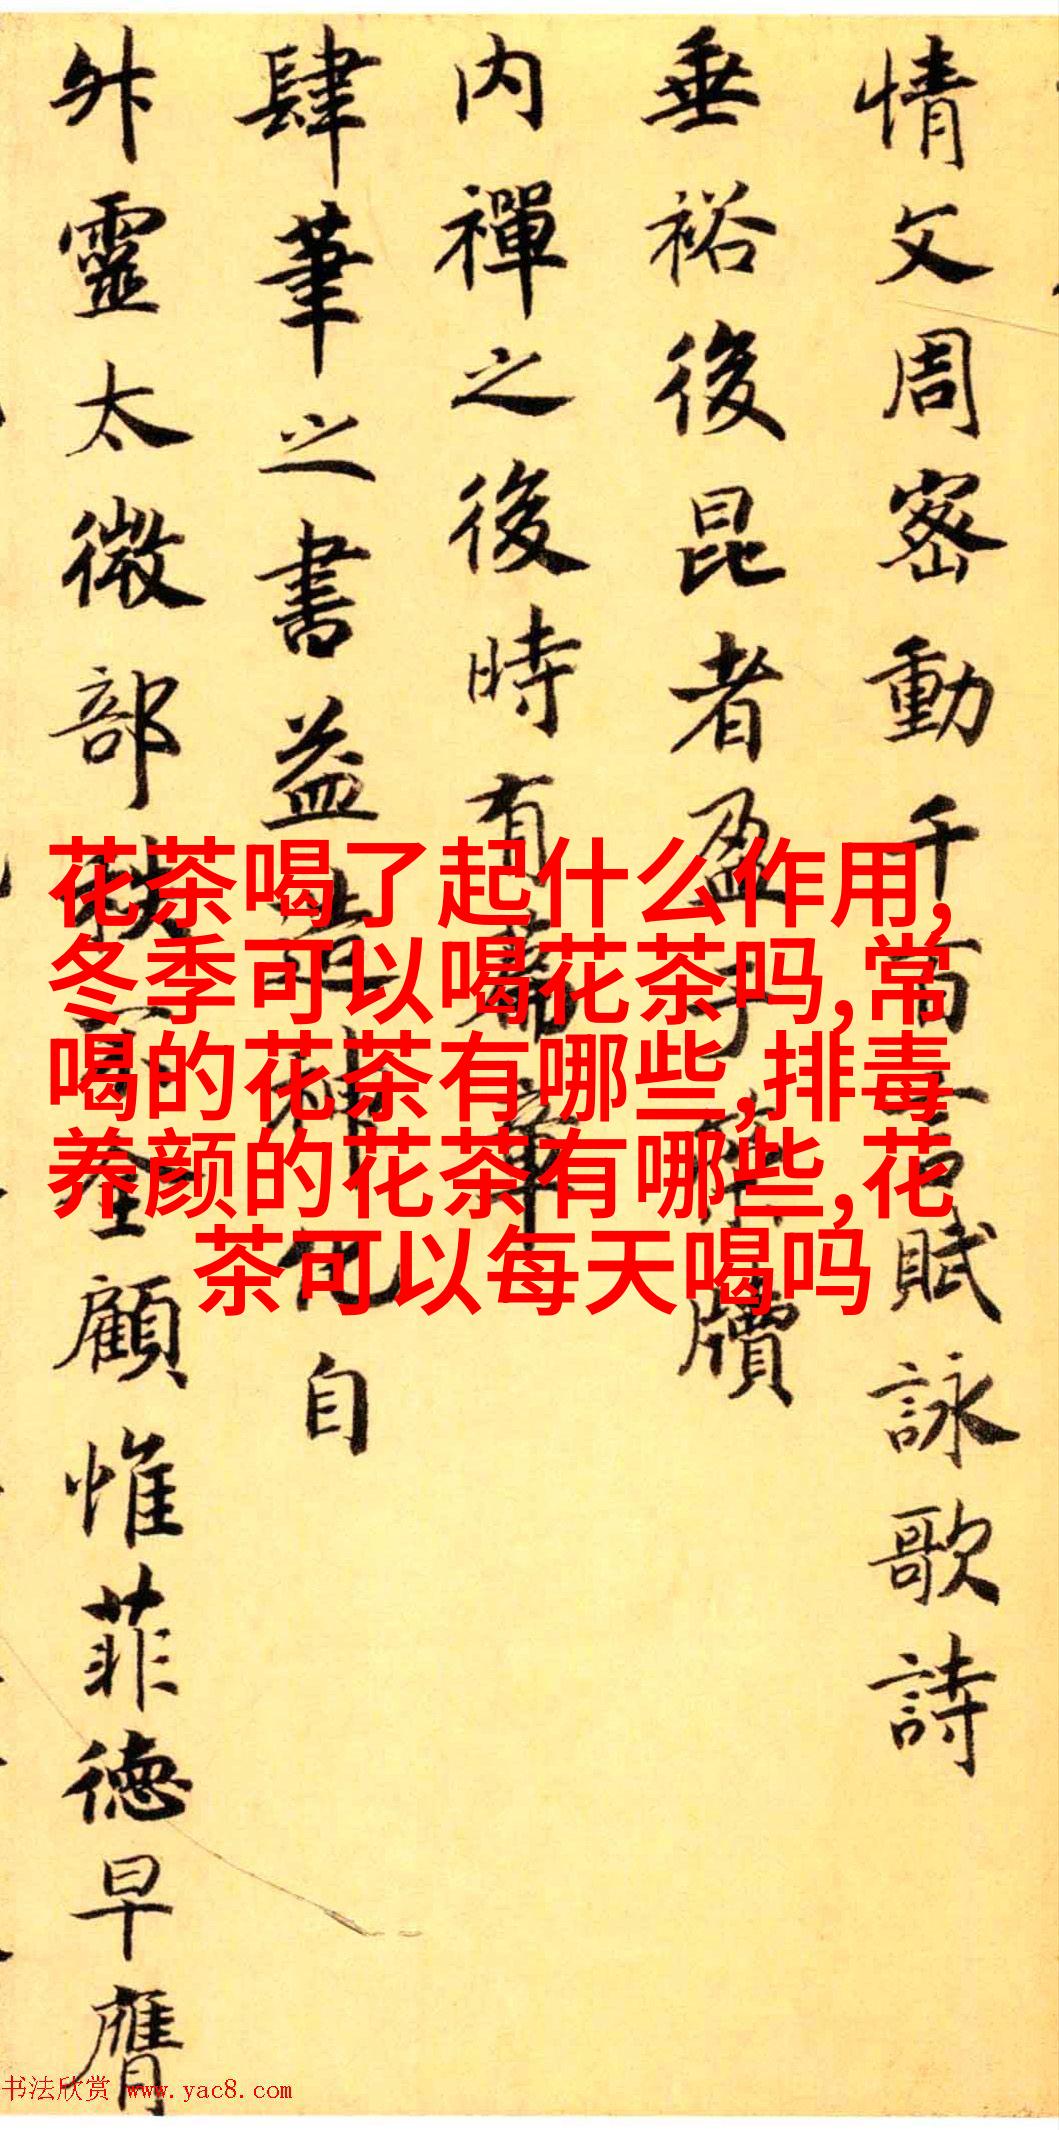 情文周密動千萬言賦詠歌詩
垂裕後昆者盈手簡牘
内禪之後時有篇章
肆筆之書益造神化自
外靈太微部秩宗全顧惟菲德早膺
花茶喝了起什么作用,
冬季可以喝花茶吗,常
喝的花茶有哪些,排毒
养颜的花茶有哪些,花
茶可以每天喝吗
书法欣赏 www.yac8.com